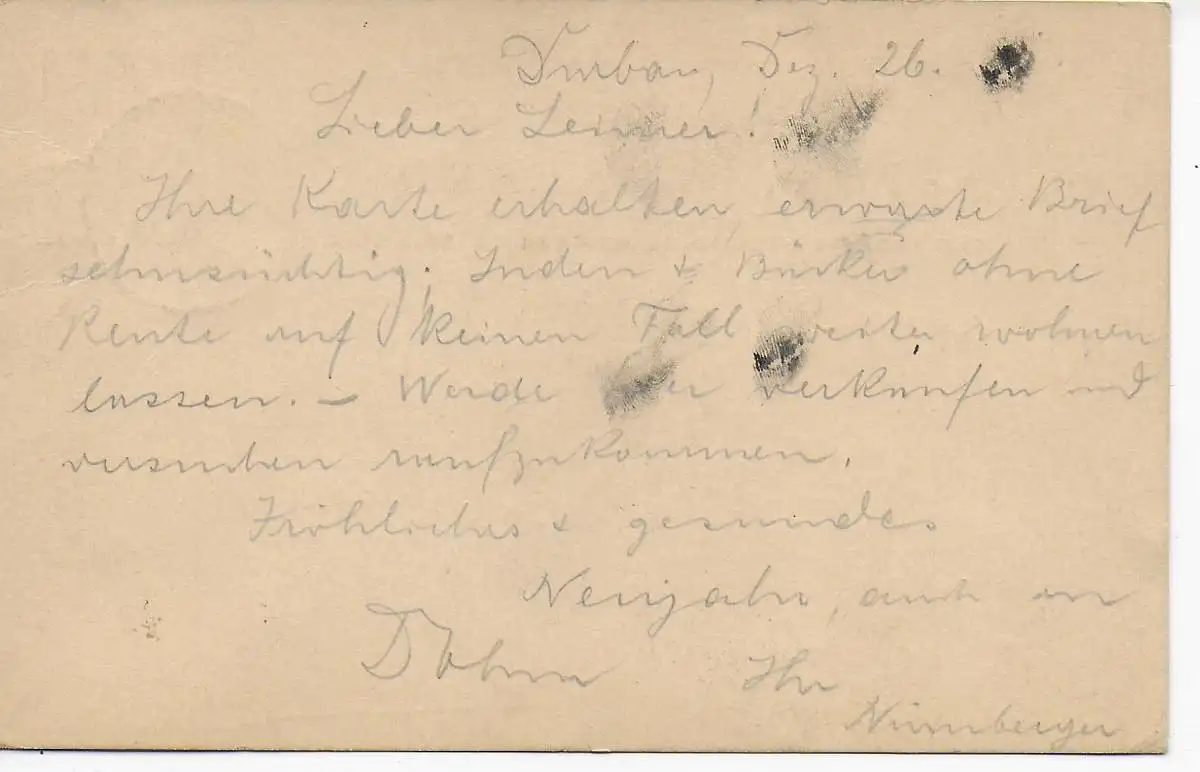 Durban, Dez. 26.
Lieber Leisner!
Ihre Karte erhalten, erwarte Brief
sehnsüchtig. Juden + Bürker ohne
Rente auf keinen Fall weiter wohnen
lassen. — Werde hier verkaufen und
versuchen raufzukommen.
Fröhliches + gesundes
Neujahr, auch an
Döhm Ihr
Nürnberger